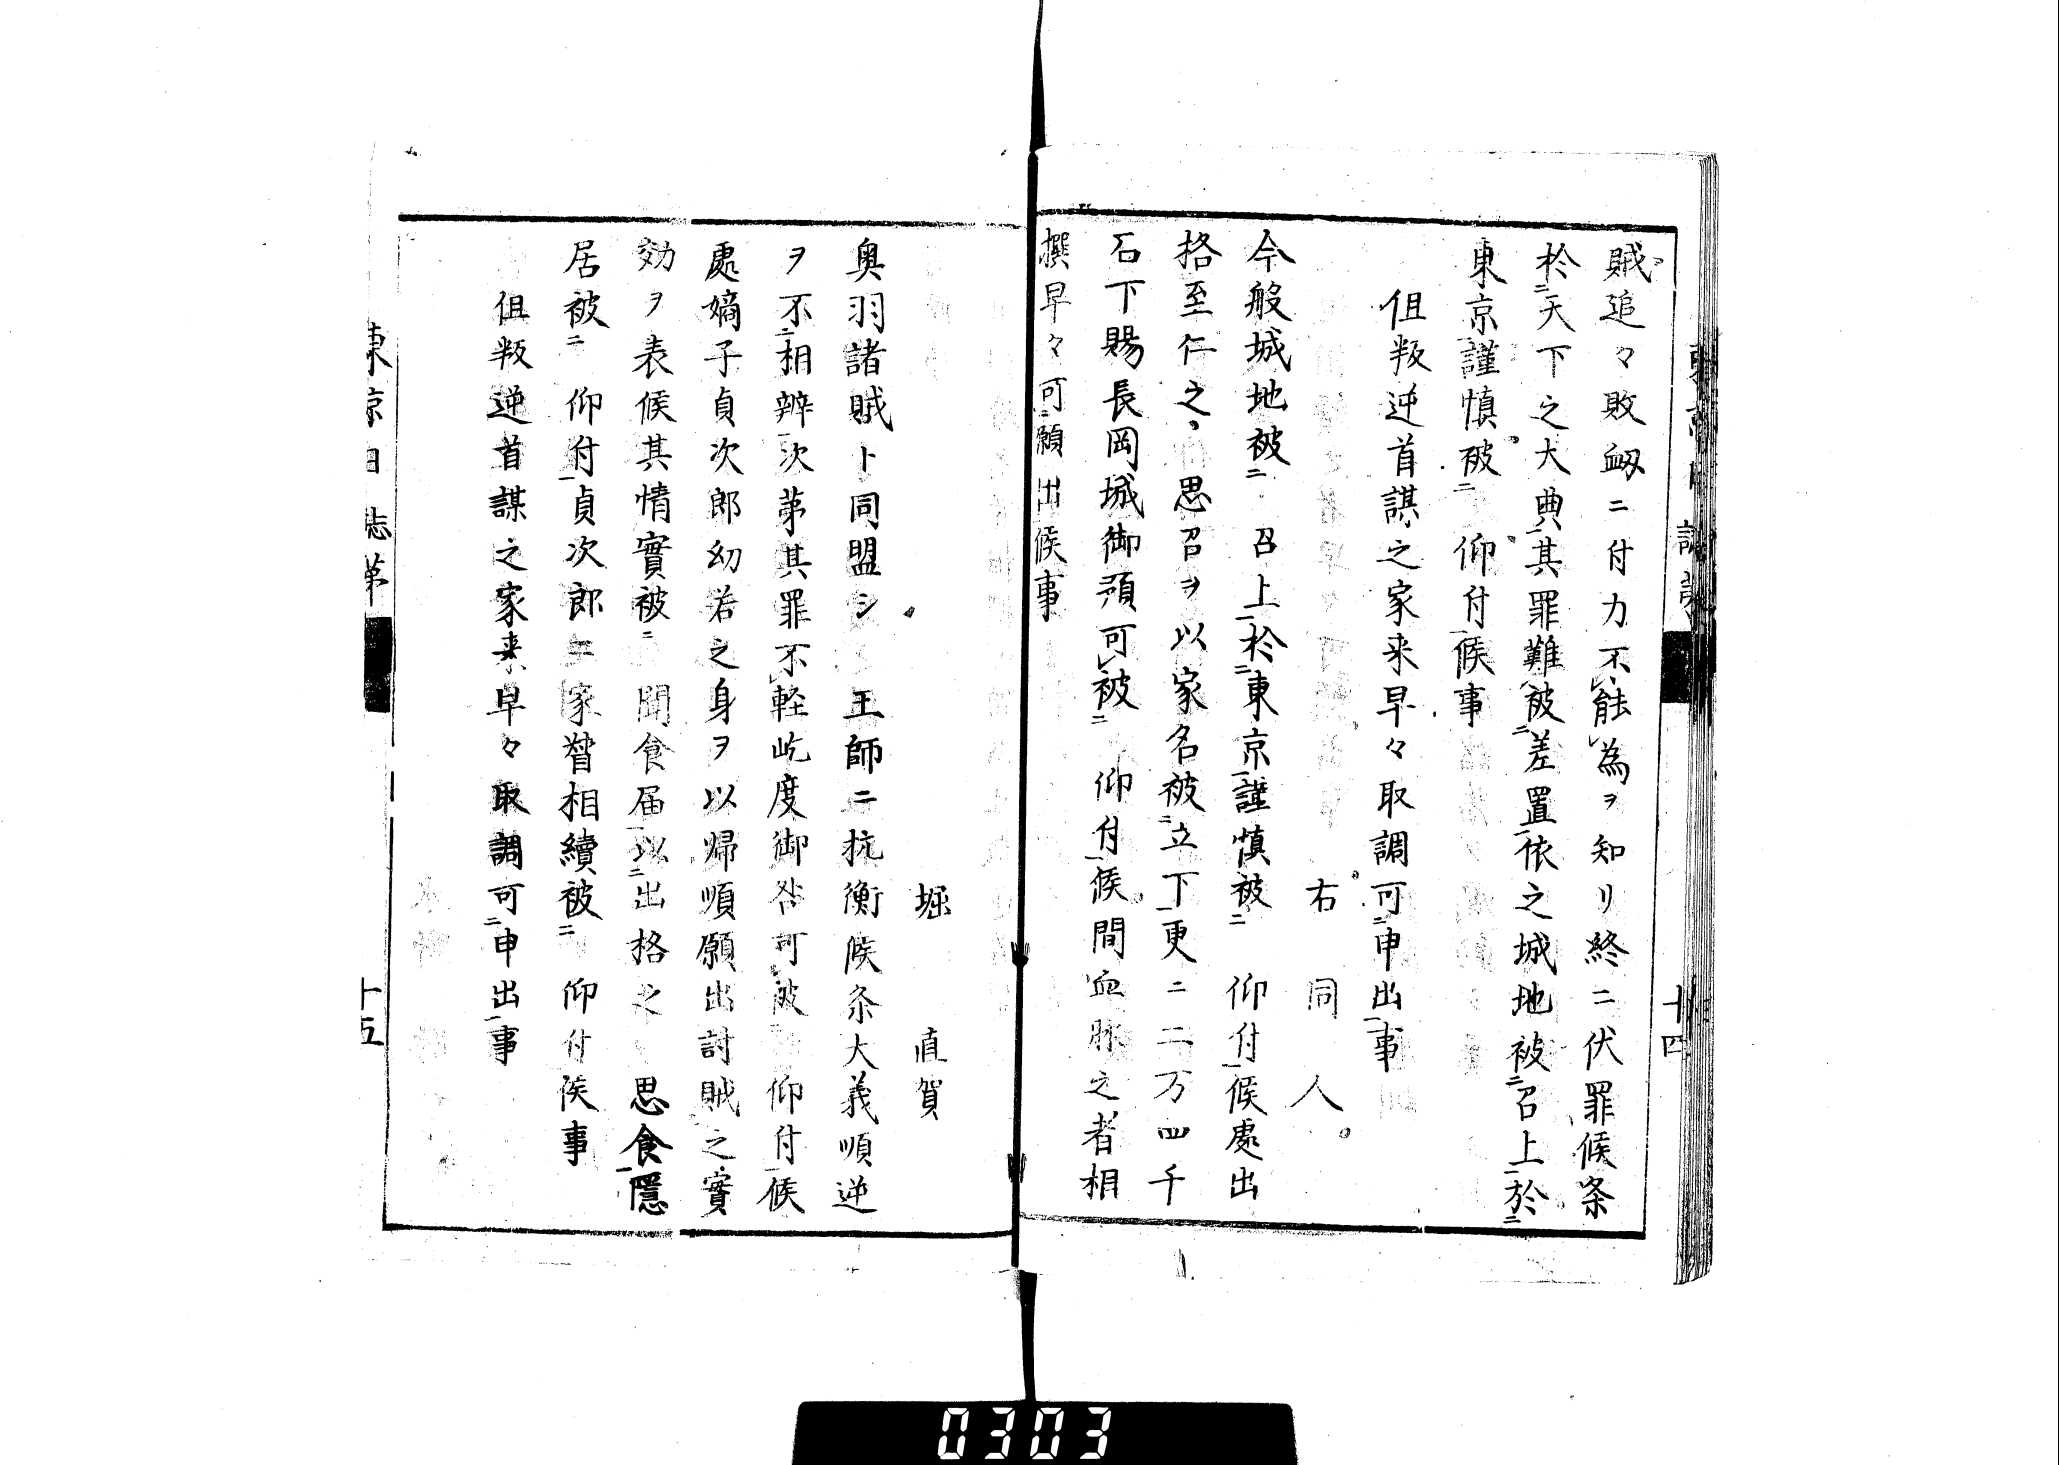 賊追々敗衂ニ付力不㆑能㆑為ヲ知リ終ニ伏罪候条
於㆓天下之大典㆒其罪難㆑被㆓差置㆒依之城地被㆓召上㆒於㆓
東京㆒謹慎被㆓ 仰付㆒候事
但叛逆首謀之家来早々取調可㆓申出㆒事
右同人
今般城地被㆓ 召上㆒於㆓東京㆒謹慎被㆓ 仰付㆒候處出
格至仁之 思召ヲ以家名被㆓立下㆒更ニ二万四千
石下賜長岡城御預可㆑被㆓ 仰付㆒候間血脉之者相
撰早々可㆓願出㆒候事
十四
堀直賀
奥羽諸賊ト同盟シ 王師ニ抗衡候条大義順逆
ヲ不㆓相辨㆒次第其罪不㆑軽屹度御咎可㆑被㆓ 仰付㆒候
處嫡子貞次郎幼若之身ヲ以歸順願出討賊之實
効ヲ表候其情實被㆓ 聞食届㆒以㆓出格之 思食㆒隱
居被㆓ 仰付㆒貞次郎ニ家督相續被㆓ 仰付候事
但叛逆首謀之家来早々取調可㆓申出㆒事
東京日誌第
十五
0303